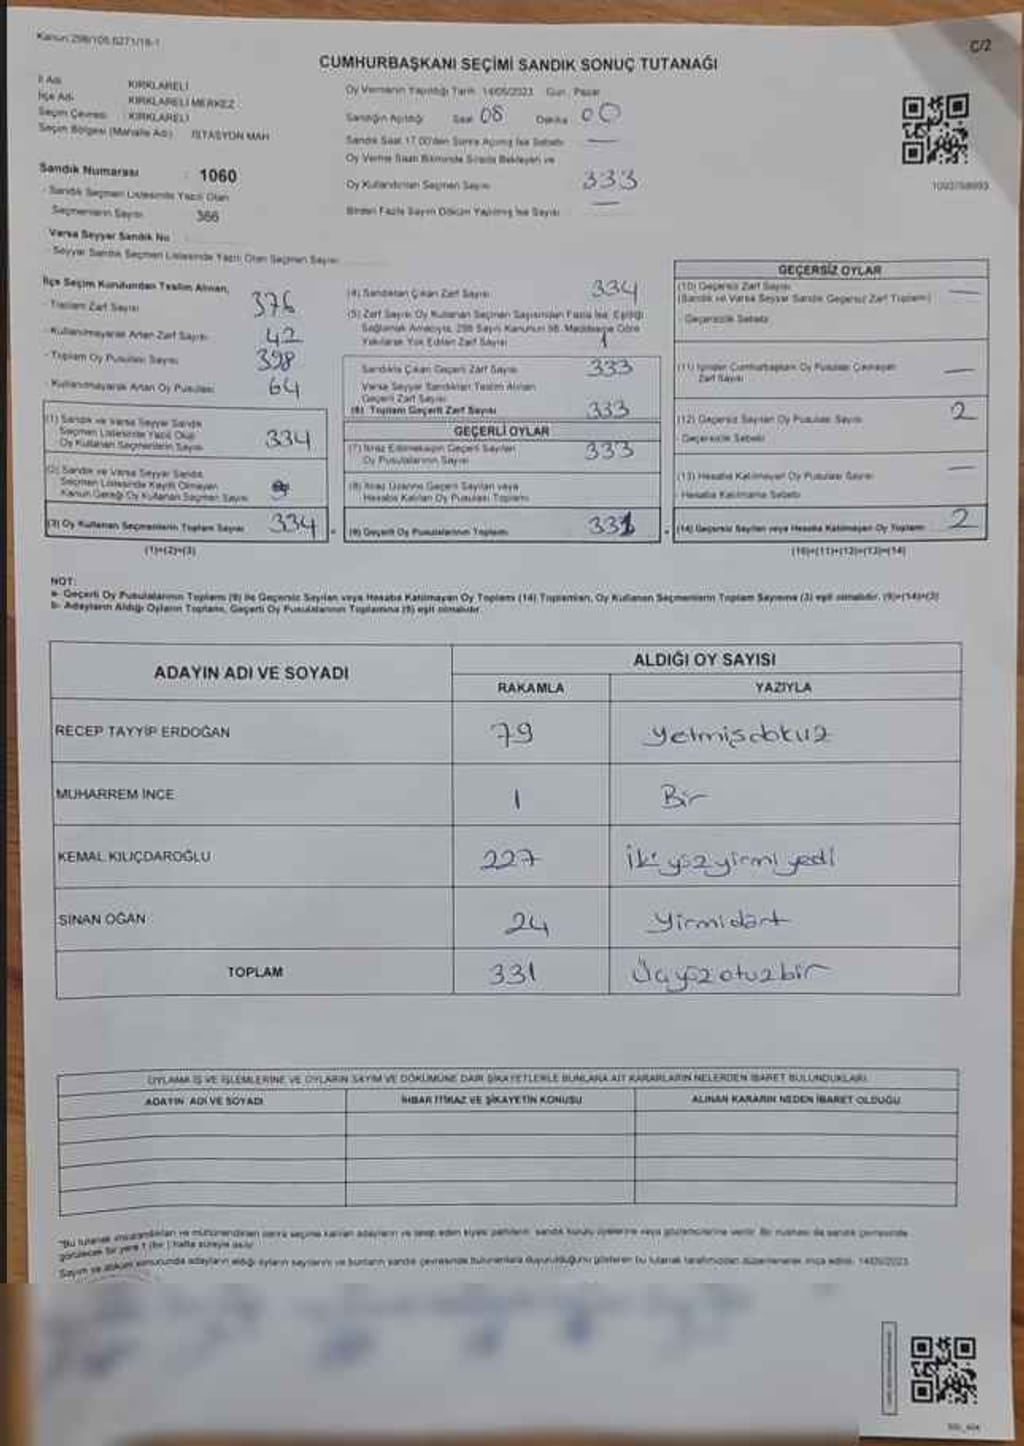 Kanun:298/105.6271/16-1
C/2
CUMHURBAŞKANI SEÇİMİ SANDIK SONUÇ TUTANAĞI
İl Adı KIRKLARELİ
İlçe Adı KIRKLARELİ MERKEZ
Seçim Çevresi : KIRKLARELİ
Seçim Bölgesi (Mahalle Adı) İSTASYON MAH
Sandık Numarası : 1060
- Sandık Seçmen Listesinde Yazılı Olan
Seçmenlerin Sayısı 366
Varsa Seyyar Sandık No
- Seyyar Sandık Seçmen Listesinde Yazılı Olan Seçmen Sayısı
Oy Vermenin Yapıldığı Tarih 14/05/2023 Gün : Pazar
Sandığın Açıldığı Saat 08 Dakika 00
Sandık Saat 17.00'den Sonra Açılmış İse Sebebi —
Oy Verme Saati Bitiminde Sırada Bekleyen ve
Oy Kullandırılan Seçmen Sayısı 333
Birden Fazla Sayım Döküm Yapılmış İse Sayısı —
1093758993
İlçe Seçim Kurulundan Teslim Alınan,
- Toplam Zarf Sayısı 376
- Kullanılmayarak Artan Zarf Sayısı 42
- Toplam Oy Pusulası Sayısı 398
- Kullanılmayarak Artan Oy Pusulası 64
(1) Sandık ve Varsa Seyyar Sandık
Seçmen Listesinde Yazılı Olup
Oy Kullanan Seçmenlerin Sayısı 334
(2) Sandık ve Varsa Seyyar Sandık
Seçmen Listesinde Kayıtlı Olmayan
Kanun Gereği Oy Kullanan Seçmen Sayısı
(3) Oy Kullanan Seçmenlerin Toplam Sayısı 334
(1)+(2)=(3)
(4) Sandıktan Çıkan Zarf Sayısı 334
(5) Zarf Sayısı Oy Kullanan Seçmen Sayısından Fazla İse, Eşitliği
Sağlamak Amacıyla, 298 Sayılı Kanunun 98. Maddesine Göre
Yakılarak Yok Edilen Zarf Sayısı 1
Sandıkta Çıkan Geçerli Zarf Sayısı 333
Varsa Seyyar Sandıktan Teslim Alınan
Geçerli Zarf Sayısı
(6) Toplam Geçerli Zarf Sayısı 333
GEÇERLİ OYLAR
(7) İtiraz Edilmeksizin Geçerli Sayılan
Oy Pusulalarının Sayısı 333
(8) İtiraz Üzerine Geçerli Sayılan veya
Hesaba Katılan Oy Pusulası Toplamı
(9) Geçerli Oy Pusulalarının Toplamı 331
GEÇERSİZ OYLAR
(10) Geçersiz Zarf Sayısı —
(Sandık ve Varsa Seyyar Sandık Geçersiz Zarf Toplamı)
- Geçersizlik Sebebi
(11) İçinden Cumhurbaşkanı Oy Pusulası Çıkmayan
Zarf Sayısı —
(12) Geçersiz Sayılan Oy Pusulası Sayısı 2
- Geçersizlik Sebebi
(13) Hesaba Katılmayan Oy Pusulası Sayısı —
- Hesaba Katılmama Sebebi
(14) Geçersiz Sayılan veya Hesaba Katılmayan Oy Toplamı 2
(10)+(11)+(12)+(13)=(14)
NOT:
a- Geçerli Oy Pusulalarının Toplamı (9) ile Geçersiz Sayılan veya Hesaba Katılmayan Oy Toplamı (14) Toplamları, Oy Kullanan Seçmenlerin Toplam Sayısına (3) eşit olmalıdır. (9)+(14)=(3)
b- Adayların Aldığı Oyların Toplamı, Geçerli Oy Pusulalarının Toplamına (9) eşit olmalıdır.
ADAYIN ADI VE SOYADI
ALDIĞI OY SAYISI
RAKAMLA YAZIYLA
RECEP TAYYİP ERDOĞAN 79 yetmişdokuz
MUHARREM İNCE 1 Bir
KEMAL KILIÇDAROĞLU 227 iki yüz yirmi yedi
SİNAN OĞAN 24 yirmidört
TOPLAM 331 Üçyüz otuzbir
OYLAMA İŞ VE İŞLEMLERİNE VE OYLARIN SAYIM VE DÖKÜMÜNE DAİR ŞİKAYETLERLE BUNLARA AİT KARARLARIN NELERDEN İBARET BULUNDUKLARI
ADAYIN ADI VE SOYADI İHBAR İTİRAZ VE ŞİKAYETİN KONUSU ALINAN KARARIN NEDEN İBARET OLDUĞU
"Bu tutanak imzalandıktan ve mühürlendikten sonra seçime katılan adayların ve talep eden siyasi partilerin sandık kurulu üyelerine veya gözlemcilerine verilir. Bir nüshası da sandık çevresinde
görülecek bir yere 1 (bir) hafta süreyle asılır.
Sayım ve döküm sonucunda adayların aldığı oyların sayılarını ve bunların sandık çevresinde bulunanlara duyurulduğunu gösteren bu tutanak tarafımızdan düzenlenerek imza edildi. 14/05/2023